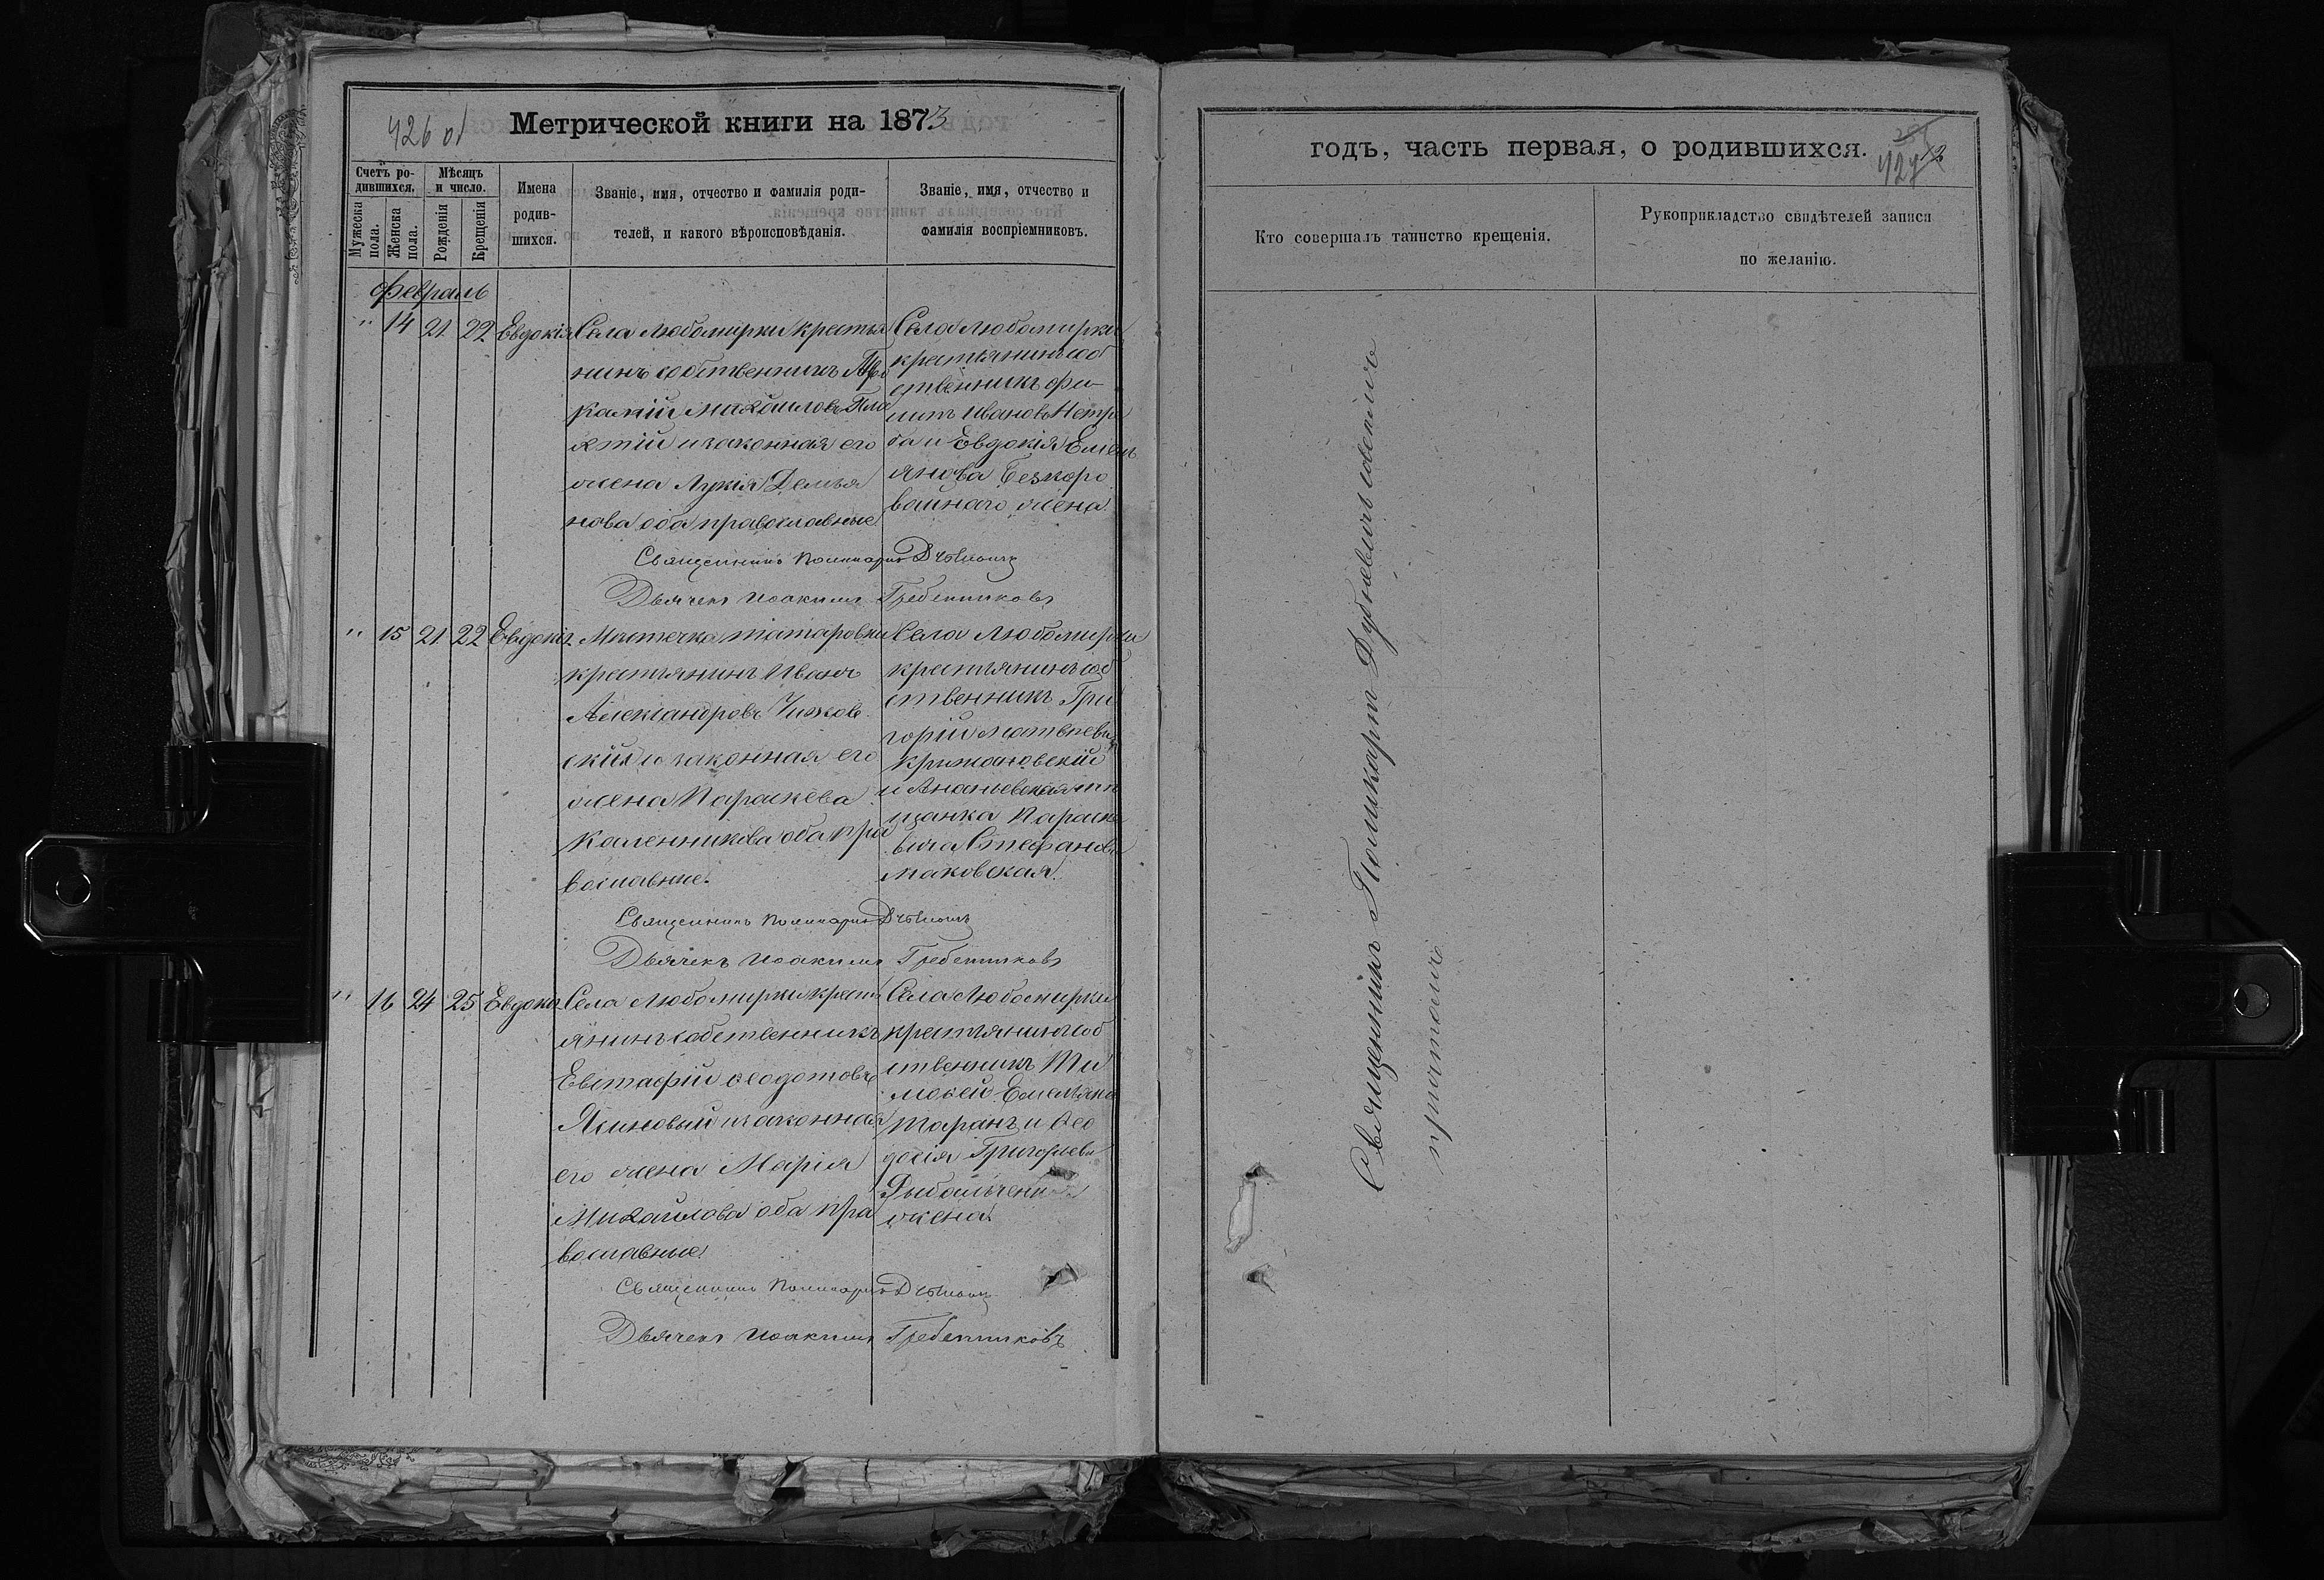 426 об
Метрической книги на 1873
Счетъ ро-
дившихся.
Мѣсяцъ
и число.
Мужеска
пола.
Женска
пола.
Рожденія
Крещенія
Имена
родив-
шихся.
Званіе, имя, отчество и фамилія роди-
телей, и какого вѣроисповѣданія.
Званіе, имя, отчество и
фамилія воспріемниковъ.
Февраль
" 14 21 22 Евдокія
Села Любомирки крестья
нинъ собственникъ
Михайловъ
и законная его
жена Лукія Демья
нова оба православные
Села Любомирки
крестьянинъ соб
ственникъ Фи-
липъ Ивановъ Петра
и Евдокія Емель
янова Безкоро
вайнаго жена
Священникъ Поликарпъ
Дьячекъ Иоакимъ Гребенниковъ
" 15 21 22 Евдокія
Мѣстечка Татаровки
крестьянинъ Иванъ
Александровъ Чижов
скій и законная его
жена Параскева
Каленникова оба пра
вославные.
Села Любомирки
крестьянинъ соб
ственникъ Гри
горій Матвѣевъ
Крыжановскій
и Ананьевская мѣ
щанка Параске
Стефанова
Маковская.
Священникъ Поликарпъ
Дьячекъ Иоакимъ Гребенниковъ
" 16 24 25 Евдокія
Села Любомирки крест
янинъ собственникъ
Евстафій Ѳеодотовъ
Ясиновый и законная
его жена Марія
Михайлова оба пра
вославные.
Села Любомирки
крестьянинъ соб
ственникъ Ти
моѳей Емельяновъ
Таранъ и Ѳео
досія Григорьева
Рыбальченка
жена.
Священникъ Поликарпъ
Дьячекъ Иоакимъ Гребенниковъ
годъ, часть первая, о родившихся.
427
Кто совершалъ таинство крещенія.
Рукоприкладство свидѣтелей записи
по желанію.
Священникъ Поликарпъ Дубневичъ съ
причтомъ